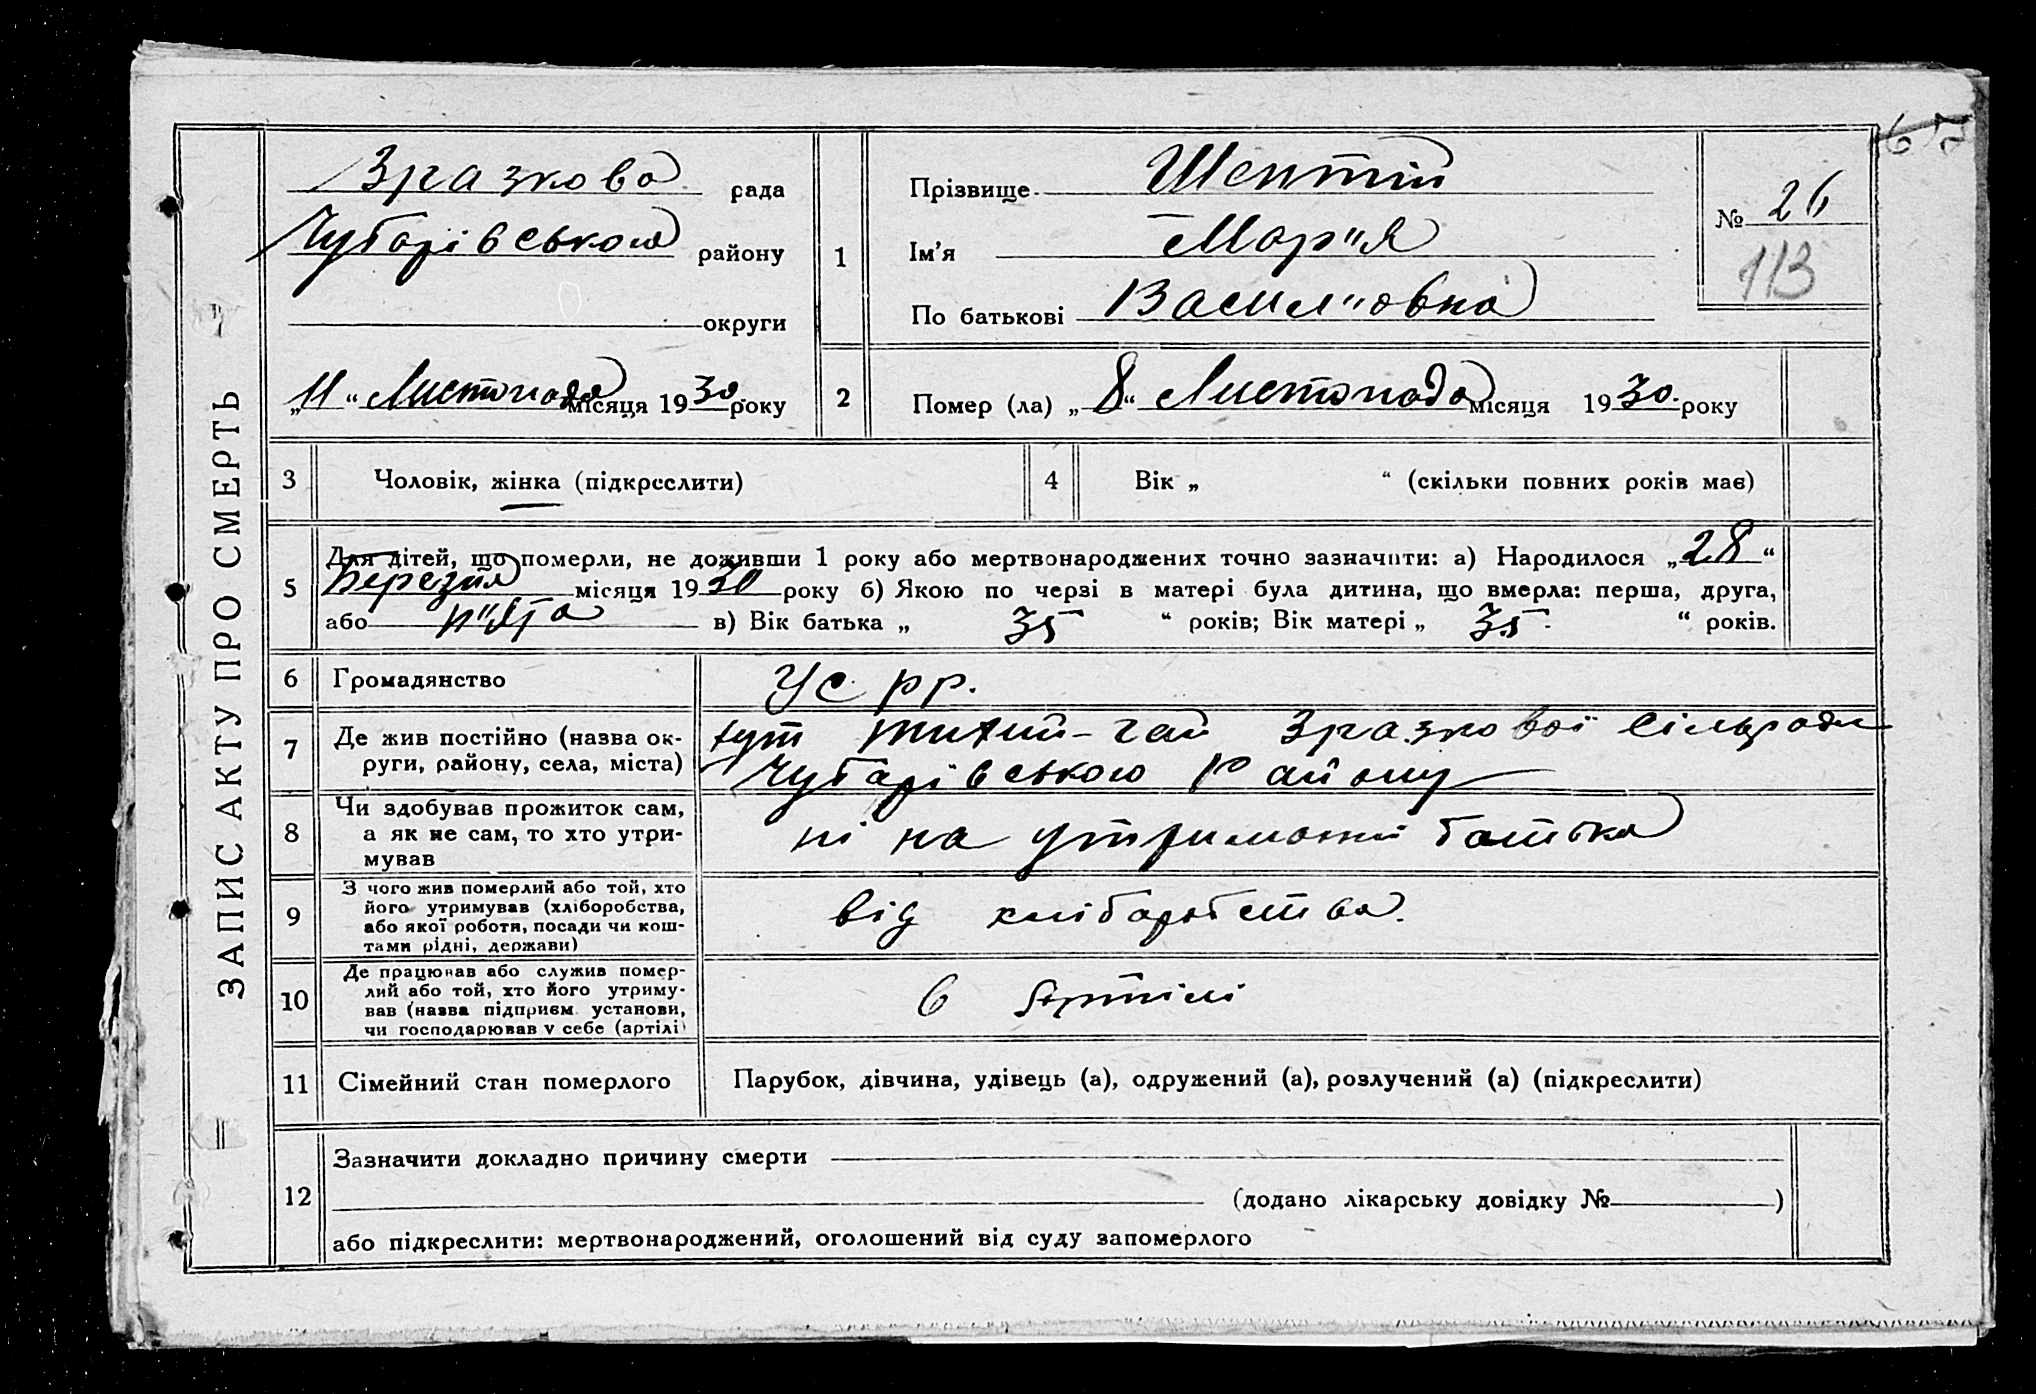 67
ЗАПИС АКТУ ПРО СМЕРТЬ
Зразкова рада
Чубарівського району
округи
„11“ Листопада місяця 1930 року
1
Прізвище Шептій
Ім'я Мар"я
По батькові Васил"овна
№ 26
113
2 Помер (ла) „8“ Листопада місяця 1930. року
3 Чоловік, жінка (підкреслити)
4 Вік „ “ (скільки повних років має)
5 Для дітей, що померли, не доживши 1 року або мертвонароджених точно зазначити: а) Народилося „28“
Березня місяця 1930 року б) Якою по черзі в матері була дитина, що вмерла: перша, друга,
або п"ята в) Вік батька „ 35 “ років; Вік матері „ 35. “ років.
6 Громадянство УСРР.
7 Де жив постійно (назва ок-
руги, району, села, міста)
тут Тихий-гай Зразкової сільради
Чубарівського Району
8 Чи здобував прожиток сам,
а як не сам, то хто утри-
мував
ні на утриманні батька
9 З чого жив померлий або той, хто
його утримував (хліборобства,
або якої роботи, посади чи кош-
тами рідні, держави)
від хліборобства.
10 Де працював або служив помер-
лий або той, хто його утриму-
вав (назва підприєм. установи,
чи господарював у себе (артілі)
в Артілі
11 Сімейний стан померлого Парубок, дівчина, удівець (а), одружений (а), розлучений (а) (підкреслити)
12 Зазначити докладно причину смерти
(додано лікарську довідку № )
або підкреслити: мертвонароджений, оголошений від суду запомерлого